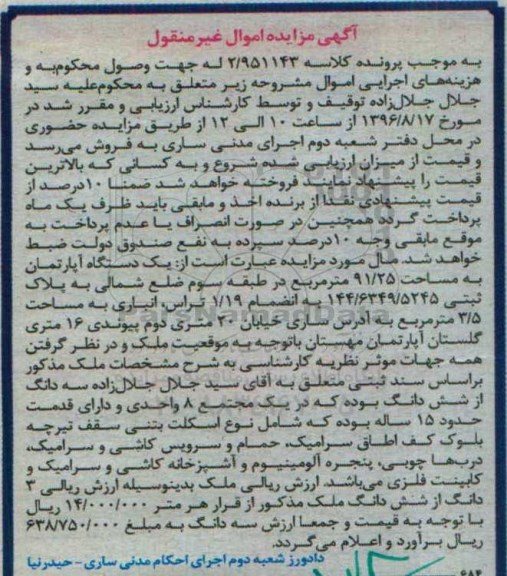 آگهی مزایده اموال غیرمنقول
به موجب پرونده کلاسه ۲/۹۵۱۱۴۳ له جهت وصول محکوم‌به و
هزینه‌های اجرایی اموال مشروحه زیر متعلق به محکوم‌علیه سید
جلال جلال‌زاده توقیف و توسط کارشناس ارزیابی و مقرر شد در
مورخ ۱۳۹۶/۸/۱۷ از ساعت ۱۰ الی ۱۲ از طریق مزایده حضوری
در محل دفتر شعبه دوم اجرای مدنی ساری به فروش می‌رسد
و قیمت از میزان ارزیابی شده شروع و به کسانی که بالاترین
قیمت را پیشنهاد نمایند فروخته خواهد شد ضمنا ۱۰درصد از
قیمت پیشنهادی نقدا از برنده اخذ و مابقی باید ظرف یک ماه
پرداخت گردد همچنین در صورت انصراف یا عدم پرداخت به
موقع مابقی وجه ۱۰درصد سپرده به نفع صندوق دولت ضبط
خواهد شد. مال مورد مزایده عبارت است از: یک دستگاه آپارتمان
به مساحت ۹۱/۲۵ مترمربع در طبقه سوم ضلع شمالی به پلاک
ثبتی ۱۴۴/۶۳۴۹/۵۲۴۵ به انضمام ۱/۱۹ تراس، انباری به مساحت
۳/۵ مترمربع به آدرس ساری خیابان ۳۰ متری دوم پیوندی ۱۶ متری
گلستان آپارتمان مهستان باتوجه به موقعیت ملک و در نظر گرفتن
همه جهات موثر نظریه کارشناسی به شرح مشخصات ملک مذکور
براساس سند ثبتی متعلق به آقای سید جلال جلال‌زاده سه دانگ
از شش دانگ بوده که در یک مجتمع ۸ واحدی و دارای قدمت
حدود ۱۵ ساله بوده که شامل نوع اسکلت بتنی سقف تیرچه
بلوک کف اطاق سرامیک، حمام و سرویس کاشی و سرامیک،
درب‌ها چوبی، پنجره آلومینیوم و آشپزخانه کاشی و سرامیک و
کابینت فلزی می‌باشد. ارزش ریالی ملک بدینوسیله ارزش ریالی ۳
دانگ از شش دانگ ملک مذکور از قرار هر متر ۱۴/۰۰۰/۰۰۰ ریال
با توجه به قیمت و جمعا ارزش سه دانگ به مبلغ ۶۳۸/۷۵۰/۰۰۰
ریال برآورد و اعلام می‌گردد.
دادورز شعبه دوم اجرای احکام مدنی ساری - حیدرنیا
۶۸۴
ParsNamadData